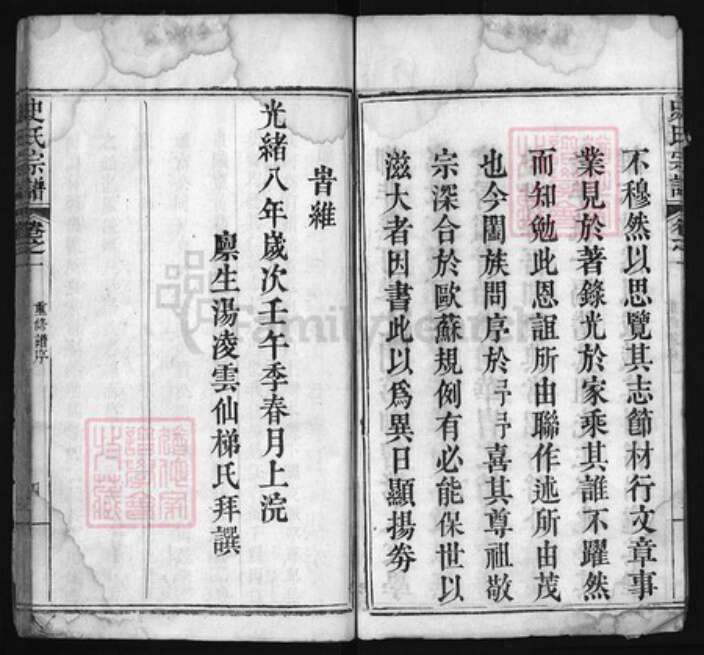 不穆然以思覽其志節材行文章事
業見於著錄光於家乘其誰不躍然
而知勉此恩誼所由聯作述所由茂
也今闔族問序於予予喜其尊祖敬
宗深合於歐蘇規例有必能保世以
滋大者因書此以為異日顯揚券
旹維
光緒八年歲次壬午季春月上浣
廩生湯凌雲仙梯氏拜譔
史氏宗譜
卷之一
重修譜序
四
史氏宗譜
FamilySearch